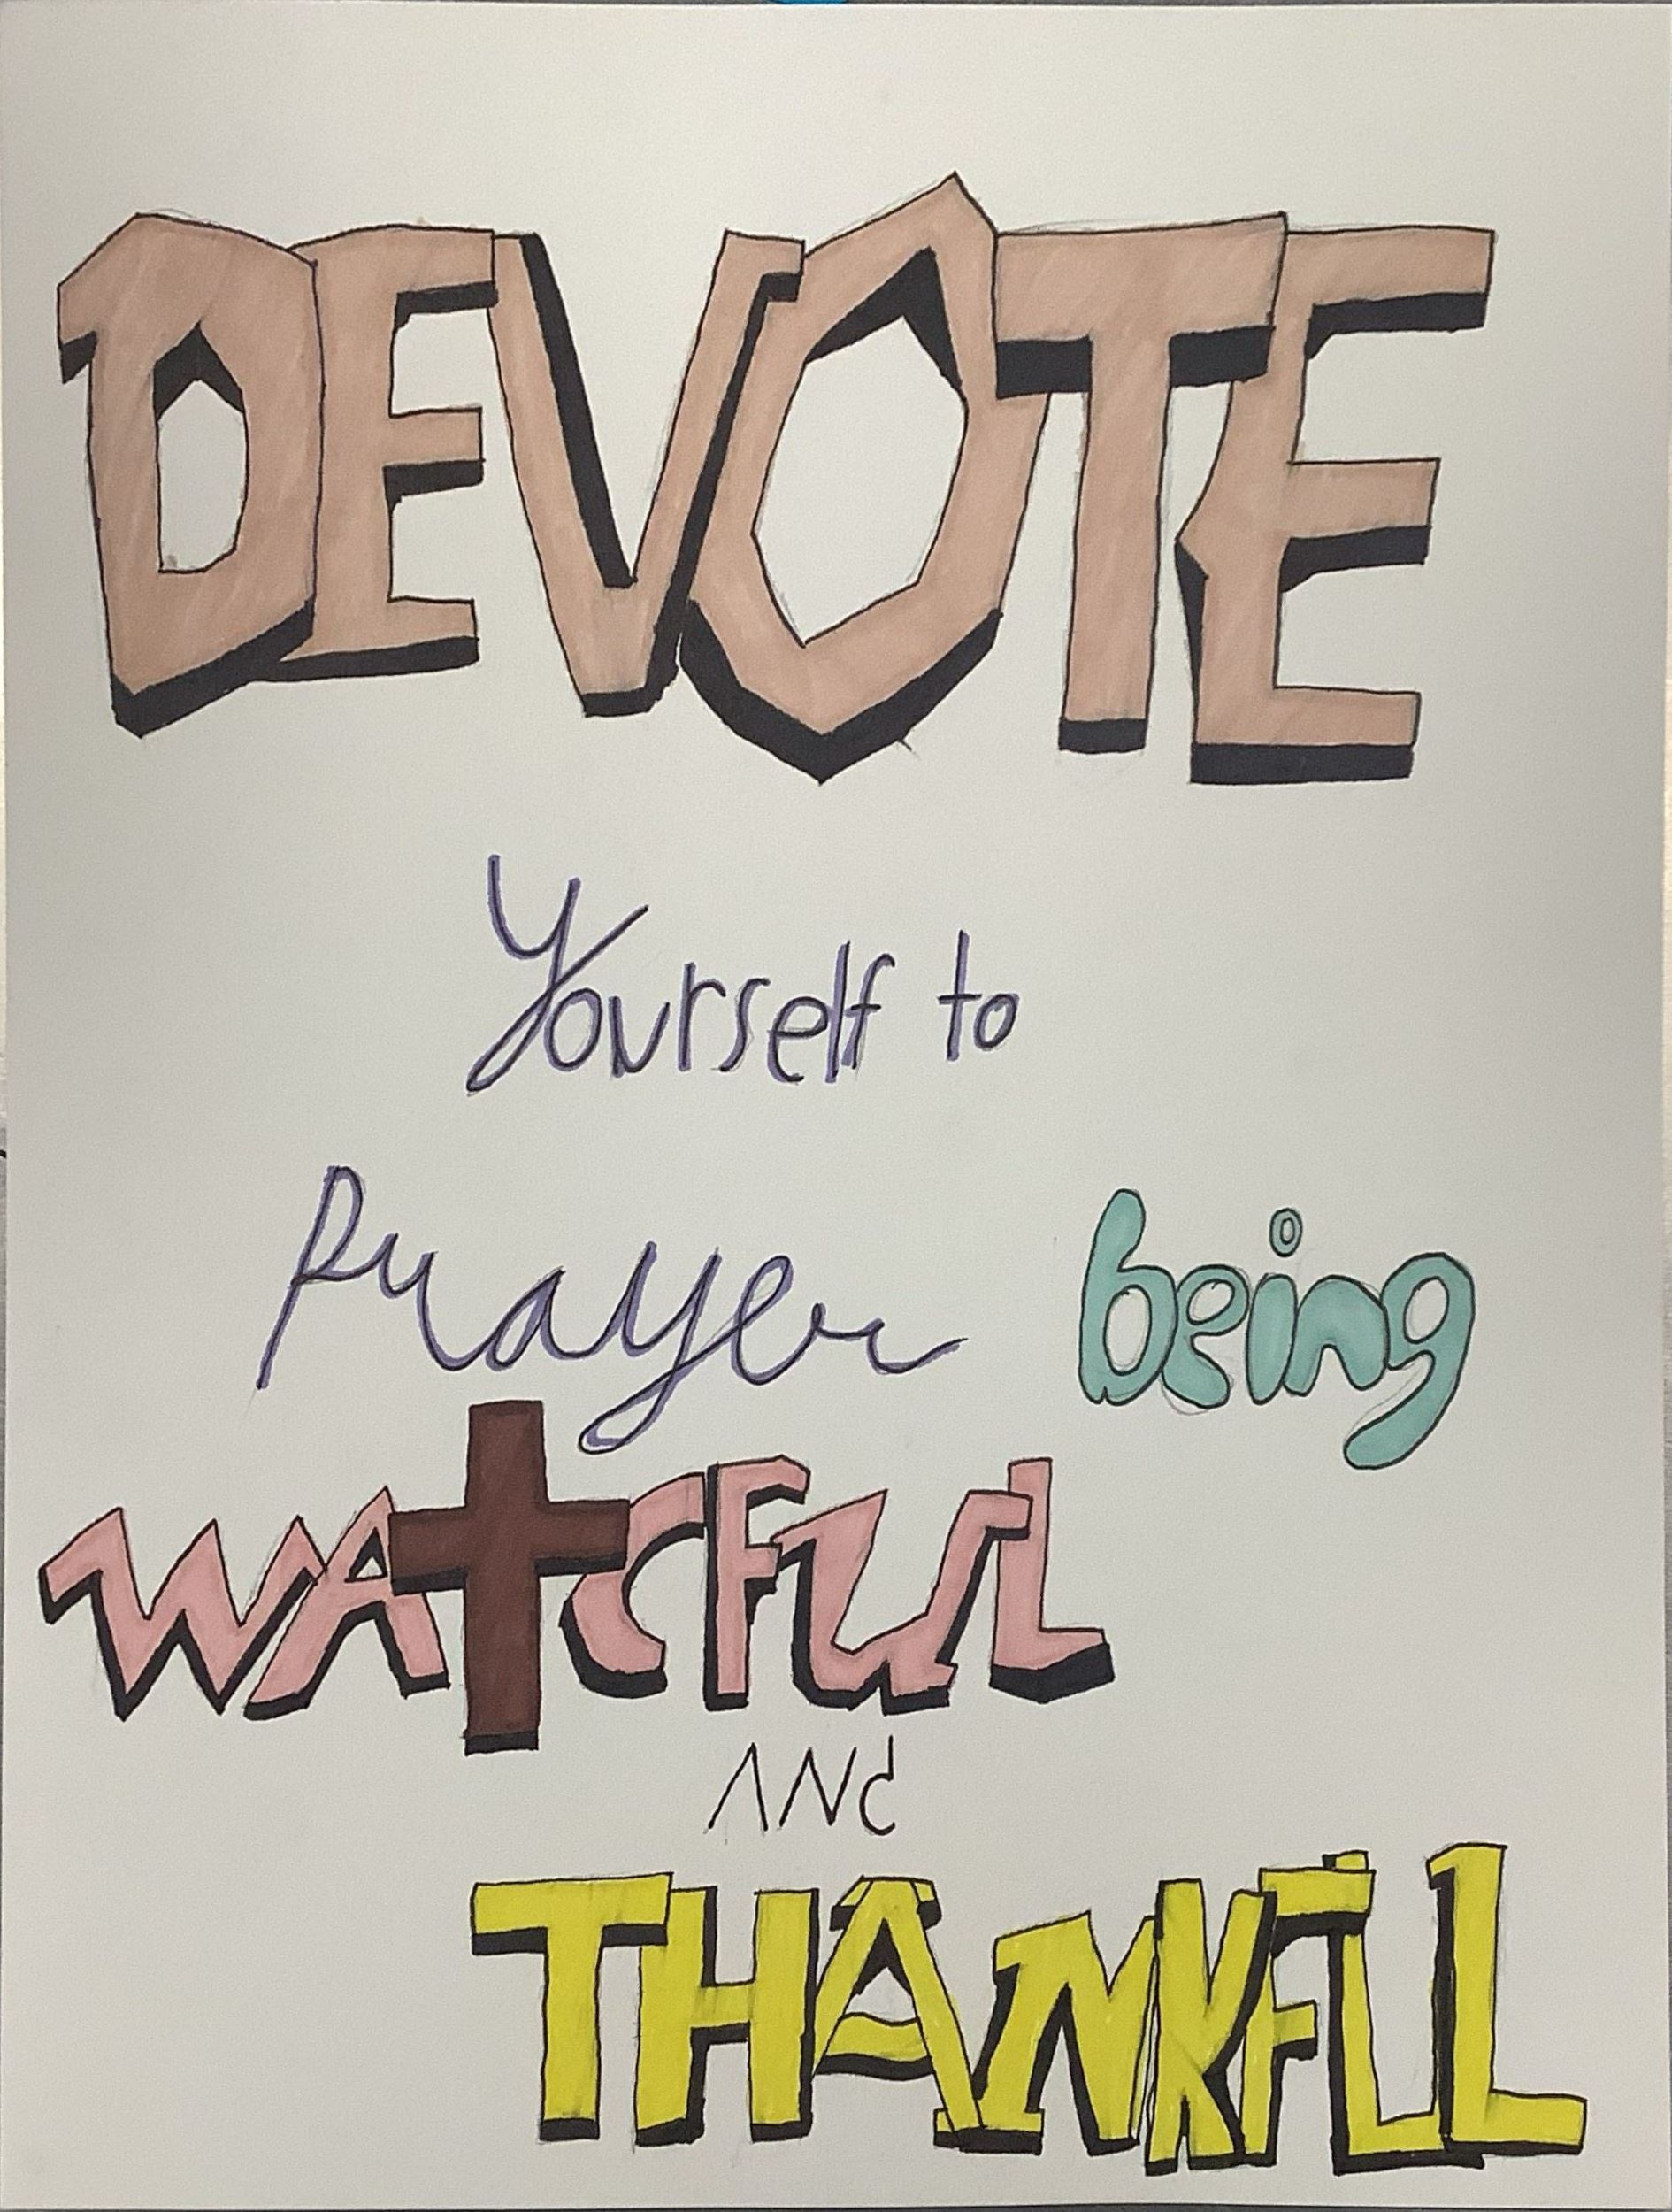 DEVOTE
Yourself to
Prayer being
WATCFUL
ANd
THANKFUL